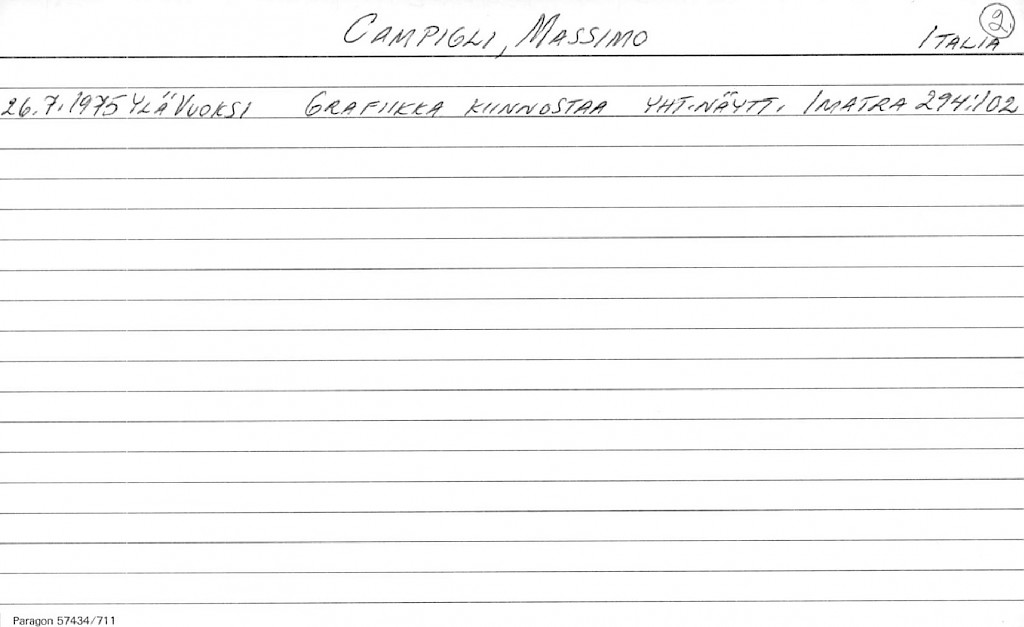 CAMPIGLI, MASSIMO ITALIA 2.
26.7.1975 YLÄ VUOKSI GRAFIIKKA KIINNOSTAA YHT.NÄYTT. IMATRA 294:102
Paragon 57434/711